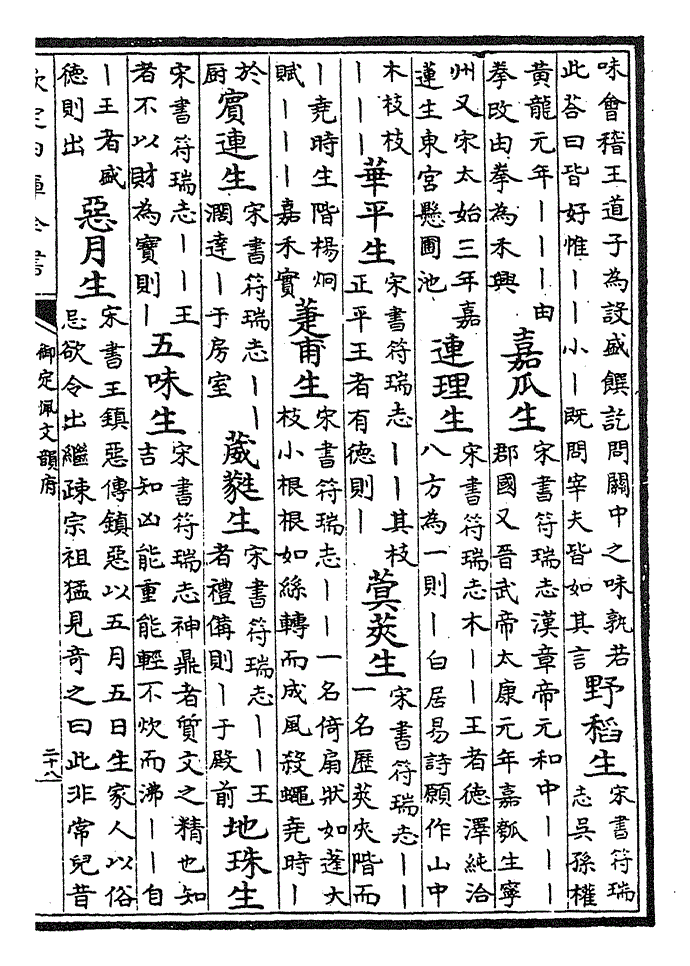 味會稽王道子為設盛饌訖問關中之味孰若
此荅曰皆好惟丨丨小丨既問宰夫皆如其言
野稻生
宋書符瑞
志吳孫權
黃龍元年丨丨丨由
拳改由拳為禾興
嘉瓜生
宋書符瑞志漢章帝元和中丨丨丨
郡國又晉武帝太康元年嘉瓠生寧
州又宋太始三年嘉
蓮生東宮懸圃池
連理生
宋書符瑞志木丨丨王者德澤純洽
八方為一則丨白居易詩願作山中
木枝枝
丨丨丨
華平生
宋書符瑞志丨丨其枝
正平王者有德則丨
蓂莢生
宋書符瑞志丨丨
一名歷莢夾階而
丨堯時生階楊炯
賦丨丨丨嘉禾實
萐甫生
宋書符瑞志丨丨一名倚扇狀如蓬大
枝小根根如絲轉而成風殺蠅堯時丨
於
厨
賓連生
宋書符瑞志丨丨
濶達丨于房室
葳蕤生
宋書符瑞志丨丨王
者禮備則丨于殿前
地珠生
宋書符瑞志丨丨王
者不以財為寶則丨
五味生
宋書符瑞志神鼎者質文之精也知
吉知凶能重能輕不炊而沸丨丨自
丨王者盛
德則出
惡月生
宋書王鎮惡傳鎮惡以五月五日生家人以俗
忌欲令出繼疎宗祖猛見奇之曰此非常兒昔
欽定四庫全書
御定佩文韻府
二十八